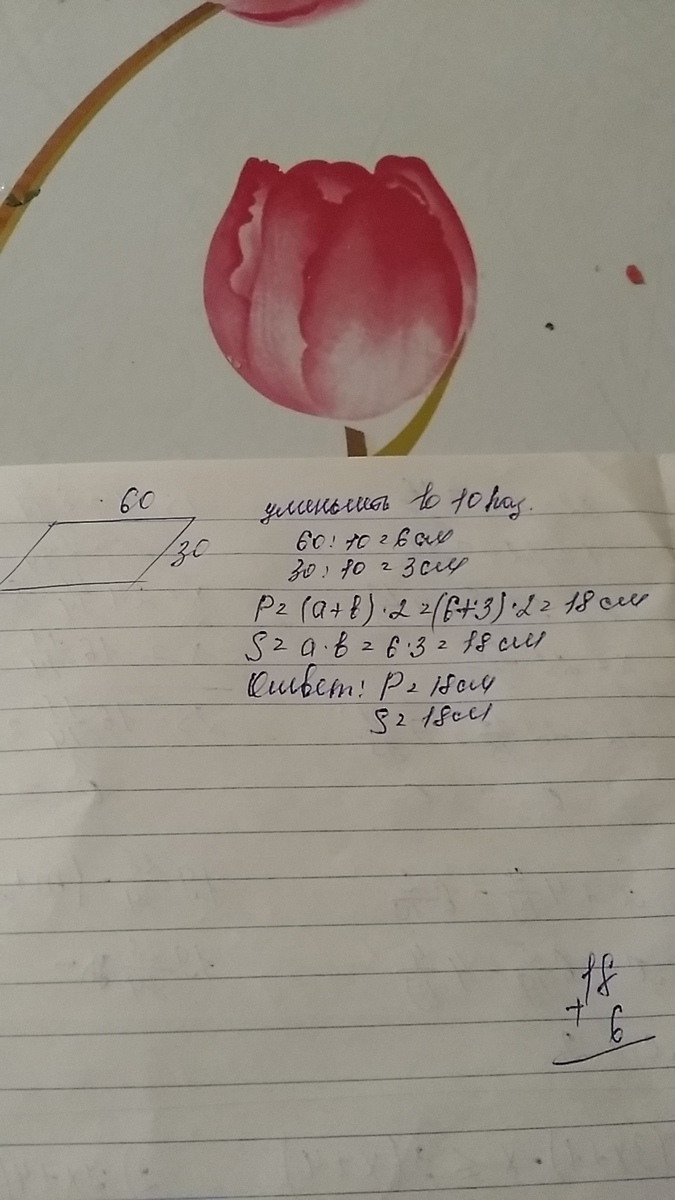 60
30
уменьшить в 10 раз.
60 : 10 = 6 см
30 : 10 = 3 см
P = (a + b) · 2 = (6+3) · 2 = 18 см
S = a · b = 6 · 3 = 18 см
Ответ: P = 18 см
S = 18 см
18
+
6